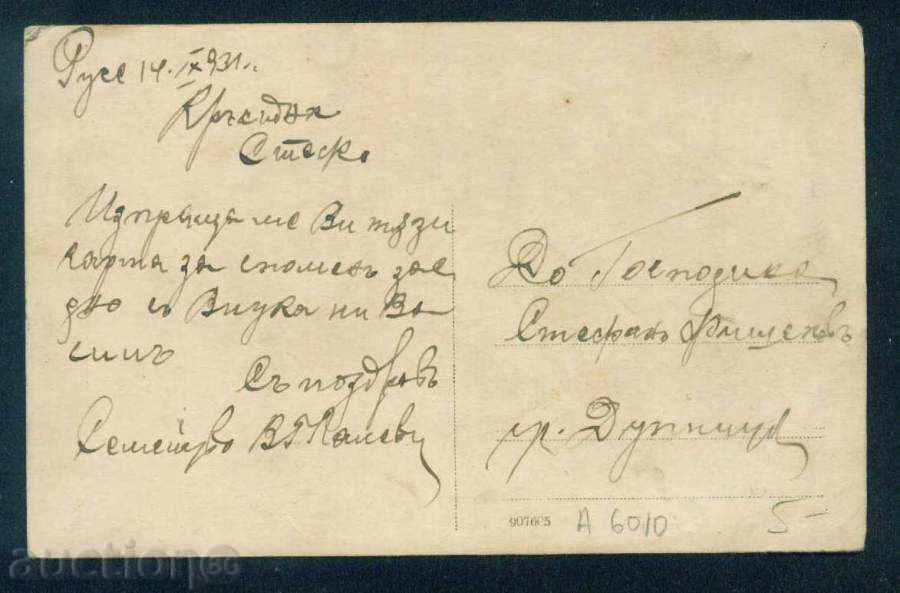 Русе 14. IX 931.
Стефко
Изпращаме Ви тази
карта за споменъ зае
дно съ Внука ни Ва
силъ
Съ поздравъ
Семейство В Г Калеви
До Господина
Стефанъ
гр. Дупница
907605
A 6010
5-
auction BG